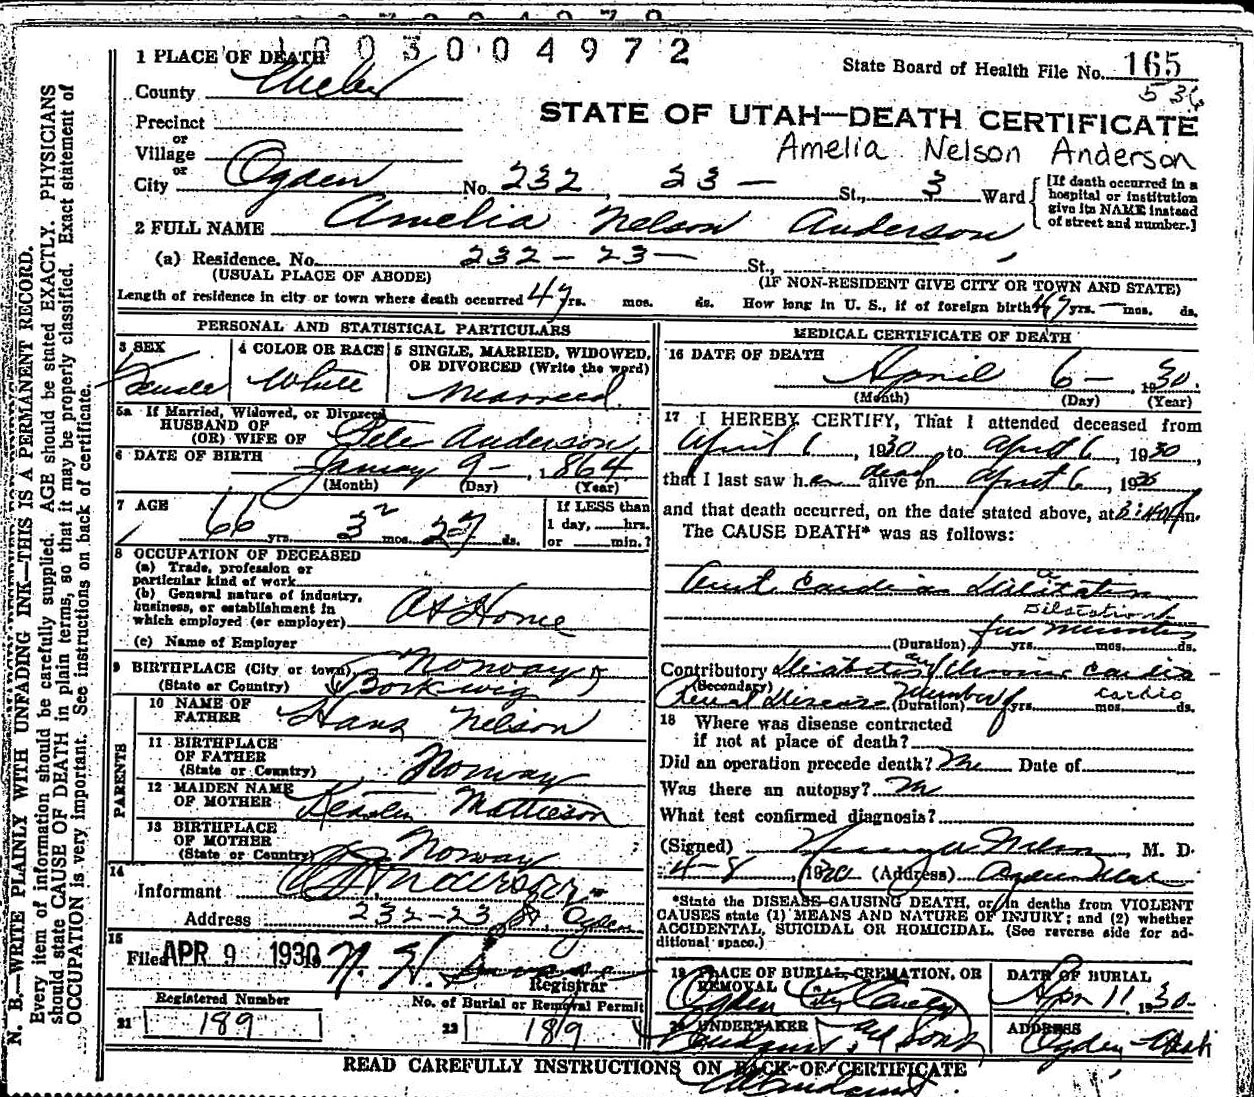 1003004972
1 PLACE OF DEATH
State Board of Health File No. 165
County Weber
STATE OF UTAH—DEATH CERTIFICATE
Precinct
or
Village
Amelia Nelson Anderson
or
City Ogden No. 232 23 — St., 3 Ward
[If death occurred in a hospital or institution give its NAME instead of street and number.]
2 FULL NAME Amelia Nelson Anderson
(a) Residence. No. 232 — 23 — St.,
(USUAL PLACE OF ABODE) (IF NON-RESIDENT GIVE CITY OR TOWN AND STATE)
Length of residence in city or town where death occurred 47 yrs. mos. ds. How long in U. S., if of foreign birth? 47 yrs. — mos. ds.
PERSONAL AND STATISTICAL PARTICULARS
3 SEX Female
4 COLOR OR RACE White
5 SINGLE, MARRIED, WIDOWED, OR DIVORCED (Write the word) Married
5a If Married, Widowed, or Divorced
HUSBAND OF
(OR) WIFE OF Peter Anderson
6 DATE OF BIRTH January 9 — , 1864
(Month) (Day) (Year)
7 AGE 66 yrs. mos. 27 ds.
If LESS than
1 day, hrs.
or min.?
8 OCCUPATION OF DECEASED
(a) Trade, profession or
particular kind of work
(b) General nature of industry,
business, or establishment in
which employed (or employer) At Home
(c) Name of Employer
9 BIRTHPLACE (City or town) Norway
(State or Country)
PARENTS
10 NAME OF
FATHER Hans Nelson
11 BIRTHPLACE
OF FATHER
(State or Country) Norway
12 MAIDEN NAME
OF MOTHER
13 BIRTHPLACE
OF MOTHER
(State or Country) Norway
14
Informant
Address 232-23 St. Ogden
15
Filed APR 9 1930
Registrar
Registered Number
21 189
No. of Burial or Removal Permit
22 189
MEDICAL CERTIFICATE OF DEATH
16 DATE OF DEATH
April 6 — , 1930.
(Month) (Day) (Year)
17 I HEREBY CERTIFY, That I attended deceased from
April 6, 1930, to April 6, 1930,
that I last saw her dead alive on April 6, 1930
and that death occurred, on the date stated above, at m.
The CAUSE DEATH* was as follows:
Cardiac Dilitation
few minutes
(Duration) yrs. mos. ds.
Contributory Diabetes and chronic cardio
(Secondary) Renal Disease Number of cardio
(Duration) yrs. mos. ds.
18 Where was disease contracted
if not at place of death?
Did an operation precede death? No Date of
Was there an autopsy? No
What test confirmed diagnosis?
(Signed) M. D.
4-8, 1930 (Address) Ogden Utah
*State the DISEASE CAUSING DEATH, or in deaths from VIOLENT
CAUSES state (1) MEANS AND NATURE OF INJURY; and (2) whether
ACCIDENTAL, SUICIDAL OR HOMICIDAL. (See reverse side for ad-
ditional space.)
19 PLACE OF BURIAL, CREMATION, OR
REMOVAL
Ogden City
DATE OF BURIAL
Apr 11, 1930
20 UNDERTAKER
Lindquist & Sons
ADDRESS
Ogden Utah
READ CAREFULLY INSTRUCTIONS ON BACK OF CERTIFICATE
N. B.—WRITE PLAINLY WITH UNFADING INK—THIS IS A PERMANENT RECORD.
Every item of information should be carefully supplied. AGE should be stated EXACTLY. PHYSICIANS
should state CAUSE OF DEATH in plain terms, so that it may be properly classified. Exact statement of
OCCUPATION is very important. See instructions on back of certificate.